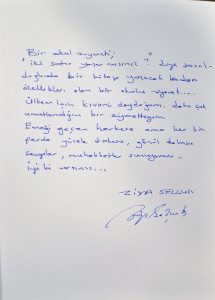 Bir okul ziyareti;
"iki satır yazar mısınız?" diye sorul-
duğunda bir kitap yazacak kadar
özellikleri olan bir okulu ziyaret...
Ülkem için kıvanç duyduğum, daha çok
umutlandığım bir ziyaretteyim
Emeği geçen herkese ama her bir
ferde yürek dolusu, gönül dolusu
sevgiler, muhabbetler sunuyorum
İyi ki varsınız...
ZİYA SELÇUK